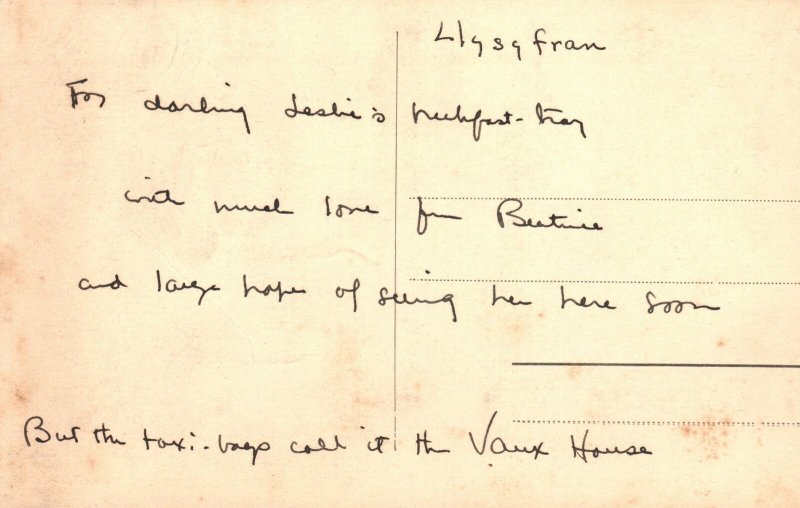 Llysyfran
For darling Leslie's breakfast-tray
with much love from Beatrice
and large hopes of seeing her here soon
But the taxi-boys call it the Vaux House